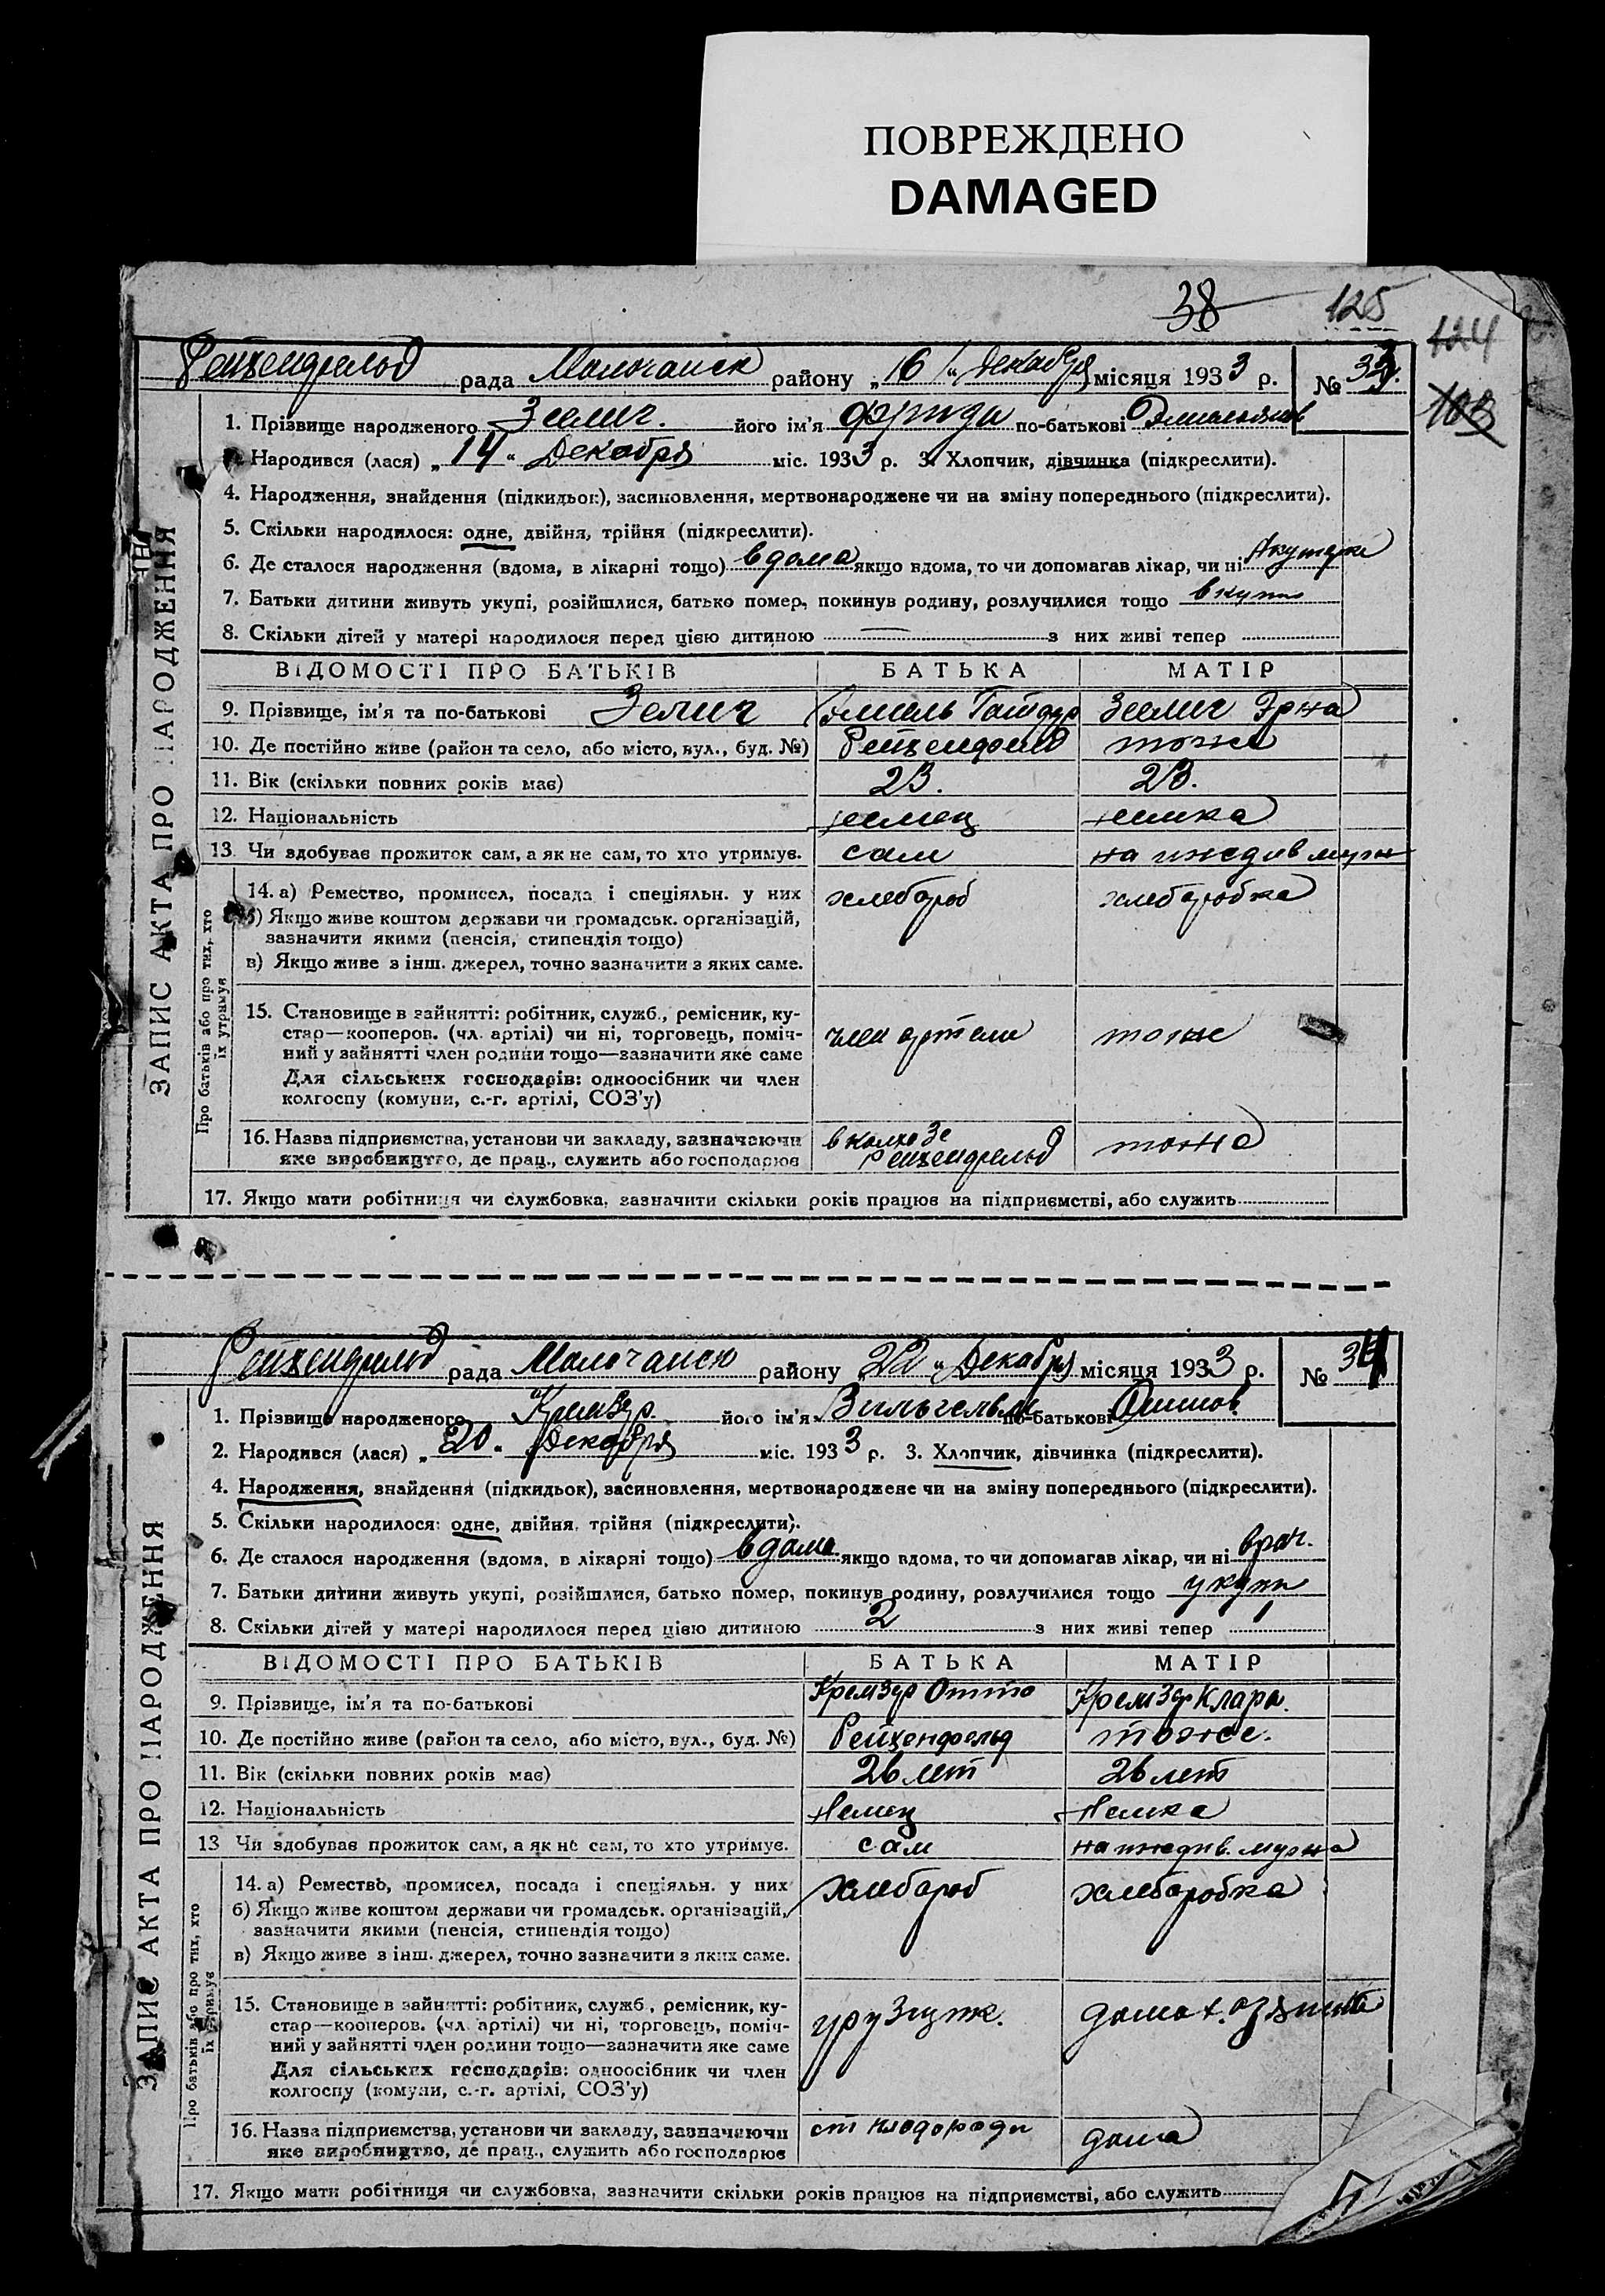 ПОВРЕЖДЕНО
DAMAGED
38 125
124
103
Рейхенфельд рада Молочанск району „16“ Декабря місяця 1933 р. № 33.
1. Прізвище народженого Зеелиг. його ім'я Фрида по-батькові
2. Народився (лася) „14“ Декабря міс. 1933 р. 3. Хлопчик, дівчинка (підкреслити).
4. Народження, знайдення (підкидьок), засиновлення, мертвонароджене чи на зміну попереднього (підкреслити).
5. Скільки народилося: одне, двійня, трійня (підкреслити).
6. Де сталося народження (вдома, в лікарні тощо) вдома якщо вдома, то чи допомагав лікар, чи ні
7. Батьки дитини живуть укупі, розійшлися, батько помер, покинув родину, розлучилися тощо вкупи
8. Скільки дітей у матері народилося перед цією дитиною — з них живі тепер
ВІДОМОСТІ ПРО БАТЬКІВ БАТЬКА МАТІР
9. Прізвище, ім'я та по-батькові Зелиг Эмиль Зеелиг Эрна
10. Де постійно живе (район та село, або місто, вул., буд. №) Рейхенфельд тоже
11. Вік (скільки повних років має) 23. 23.
12. Національність немец немка
13. Чи здобуває прожиток сам, а як не сам, то хто утримує. сам на иждив мужа
ЗАПИС АКТА ПРО НАРОДЖЕННЯ
Про батьків або про тих, хто їх утримує
14. а) Ремество, промисел, посада і спеціяльн. у них хлебороб хлеборобка
б) Якщо живе коштом держави чи громадськ. організацій,
зазначити якими (пенсія, стипендія тощо)
в) Якщо живе з інш. джерел, точно зазначити з яких саме.
15. Становище в зайнятті: робітник, служб., ремісник, ку-
стар—кооперов. (чл. артілі) чи ні, торговець, поміч- член артели тоже
ний у зайнятті член родини тощо—зазначити яке саме
Для сільських господарів: одноосібник чи член
колгоспу (комуни, с.-г. артілі, СОЗ'у)
16. Назва підприємства, установи чи закладу, зазначаючи в колхозе тоже
яке виробництво, де прац., служить або господарює Рейхенфельд
17. Якщо мати робітниця чи службовка, зазначити скільки років працює на підприємстві, або служить
Рейхенфельд рада Молочанск району „22“ Декабря місяця 1933 р. № 34
1. Прізвище народженого Кремзер. його ім'я Вильгельм по-батькові Оттов.
2. Народився (лася) „20“ Декабря міс. 1933 р. 3. Хлопчик, дівчинка (підкреслити).
4. Народження, знайдення (підкидьок), засиновлення, мертвонароджене чи на зміну попереднього (підкреслити).
5. Скільки народилося: одне, двійня, трійня (підкреслити).
6. Де сталося народження (вдома, в лікарні тощо) вдома. якщо вдома, то чи допомагав лікар, чи ні врач.
7. Батьки дитини живуть укупі, розійшлися, батько помер, покинув родину, розлучилися тощо укупи
8. Скільки дітей у матері народилося перед цією дитиною 2 з них живі тепер 1
ВІДОМОСТІ ПРО БАТЬКІВ БАТЬКА МАТІР
9. Прізвище, ім'я та по-батькові Кремзер Отто Кремзер Клара.
10. Де постійно живе (район та село, або місто, вул., буд. №) Рейхенфельд тоже.
11. Вік (скільки повних років має) 26 лет 26 лет
12. Національність Немец Немка
13 Чи здобуває прожиток сам, а як не сам, то хто утримує. сам на иждив. мужа
ЗАПИС АКТА ПРО НАРОДЖЕННЯ
Про батьків або про тих, хто їх утримує
14. а) Ремество, промисел, посада і спеціяльн. у них хлебороб хлеборобка
б) Якщо живе коштом держави чи громадськ. організацій,
зазначити якими (пенсія, стипендія тощо)
в) Якщо живе з інш. джерел, точно зазначити з яких саме.
15. Становище в зайнятті: робітник, служб., ремісник, ку-
стар—кооперов. (чл. артілі) чи ні, торговець, поміч- грузчик.
ний у зайнятті член родини тощо—зазначити яке саме
Для сільських господарів: одноосібник чи член
колгоспу (комуни, с.-г. артілі, СОЗ'у)
16. Назва підприємства, установи чи закладу, зазначаючи ст дома
яке виробництво, де прац., служить або господарює
17. Якщо мати робітниця чи службовка, зазначити скільки років працює на підприємстві, або служить